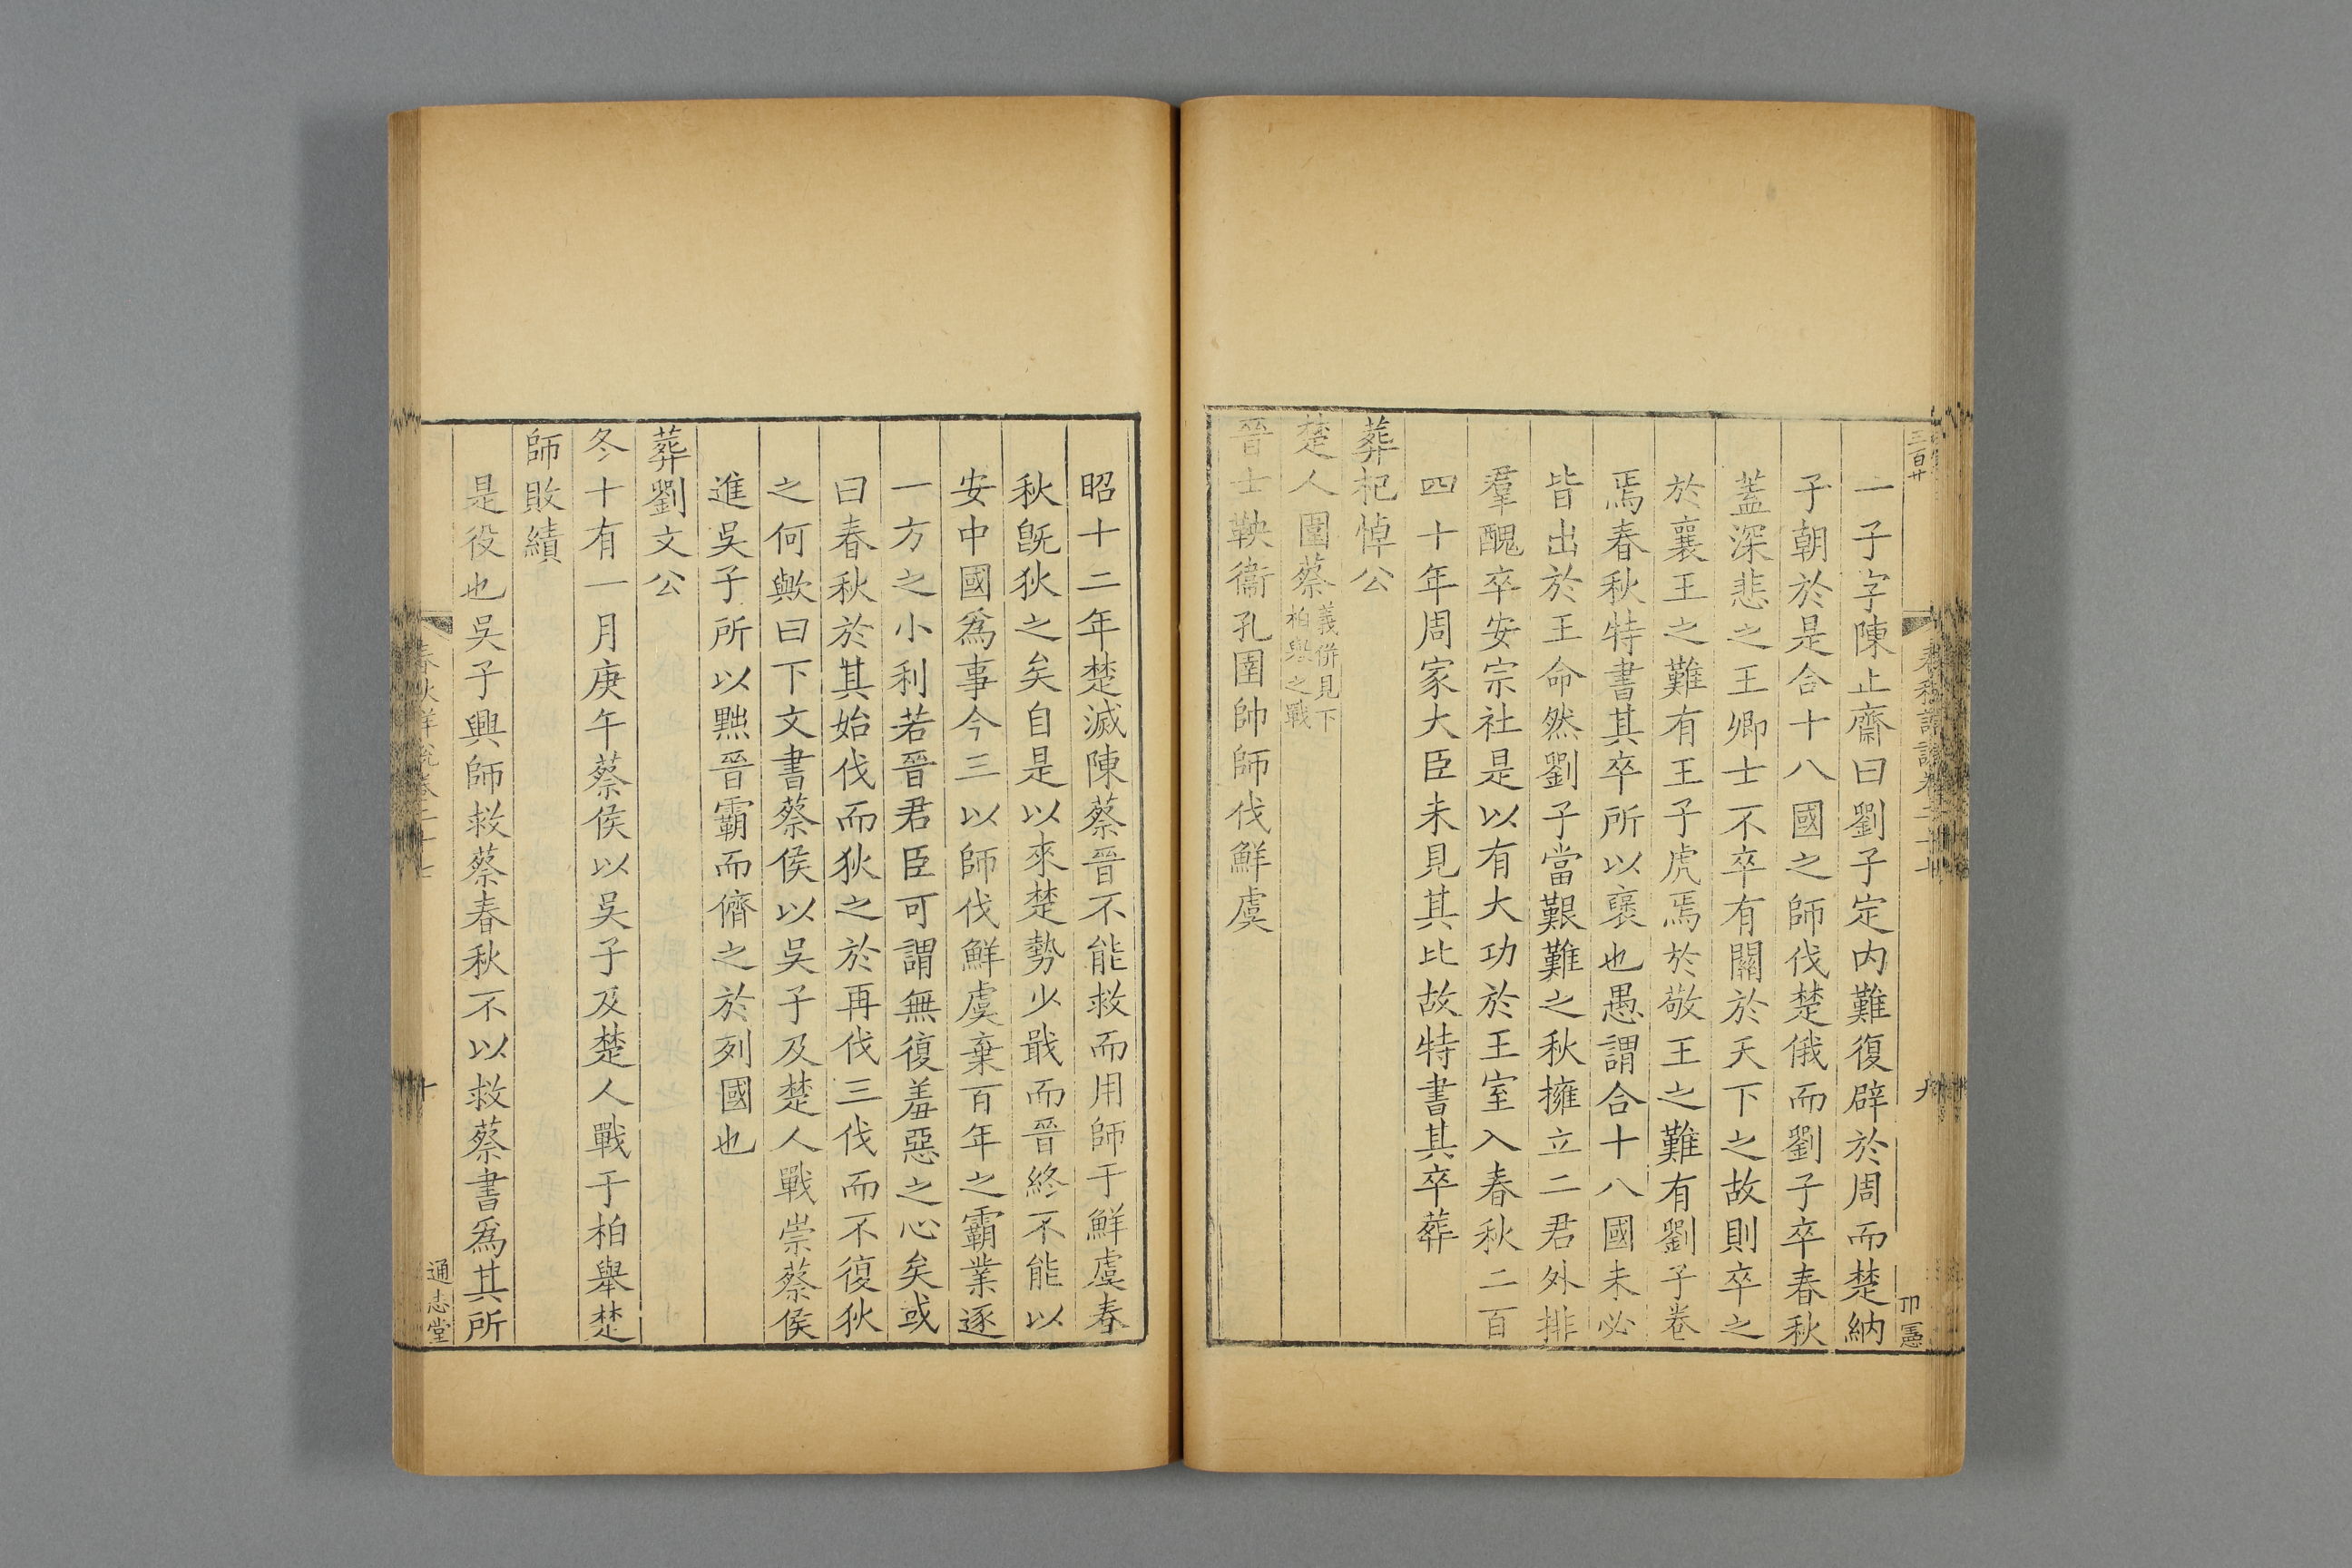 一子字陳止齋曰劉子定内難復辟於周而楚納
子朝於是合十八國之師伐楚俄而劉子卒春秋
蓋深悲之王卿士不卒有關於天下之故則卒之
於襄王之難有王子虎焉於敬王之難有劉子卷
焉春秋特書其卒所以襃也愚謂合十八國未必
皆出於王命然劉子當艱難之秋擁立二君外排
羣醜卒安宗社是以有大功於王室入春秋二百
四十年周家大臣未見其比故特書其卒葬
葬杞悼公
楚人圍蔡義併見下柏舉之戰
晉士鞅衞孔圉帥師伐鮮虞
昭十二年楚滅陳蔡晉不能救而用師于鮮虞春
秋旣狄之矣自是以來楚勢少戢而晉終不能以
安中國爲事今三以師伐鮮虞棄百年之霸業逐
一方之小利若晉君臣可謂無復羞惡之心矣或
曰春秋於其始伐而狄之於再伐三伐而不復狄
之何歟曰下文書蔡侯以吳子及楚人戰崇蔡侯
進吳子所以黜晉霸而儕之於列國也
葬劉文公
冬十有一月庚午蔡侯以吳子及楚人戰于柏舉楚
師敗績
是役也吳子興師救蔡春秋不以救蔡書爲其所
通志堂